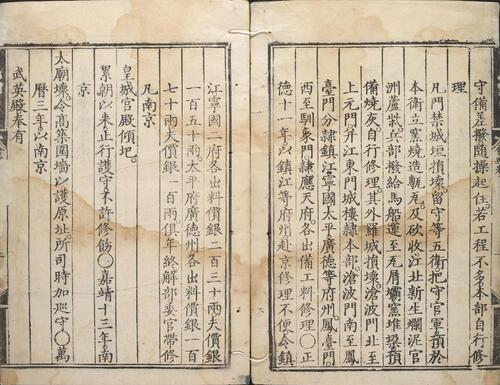 守備差撥隨操起住若工程不多本部自行修
理
凡門禁城垣損壞留守等五衛把守官軍預於
本衛立窯燒造甎瓦及砍收江北新生爛泥官
洲蘆柴兵部撥給馬船運至瓦屑壩窯堆垜預
備燒灰自行修理其外羅城損壞滄波門北至
上元門并江東門城樓隸本部滄波門南至鳳
臺門分隸鎮江寧國太平廣德等府州鳳臺門
西至馴象門隸應天府各出備工料修理○正
德十一年以鎮江等府州赴京修理不便令鎮
江寧國二府各出料價銀二百三十兩夫價銀
一百五十兩太平府廣德州各出料價銀一百
七十兩夫價銀一百兩俱年終解部委官帶修
凡南京
皇城宮殿傾圮
累朝以來止行護守不許修飭○嘉靖十三年南
京
太廟壞令高築圍牆以護原址所司時加巡守○萬
曆三年以南京
武英殿奉有